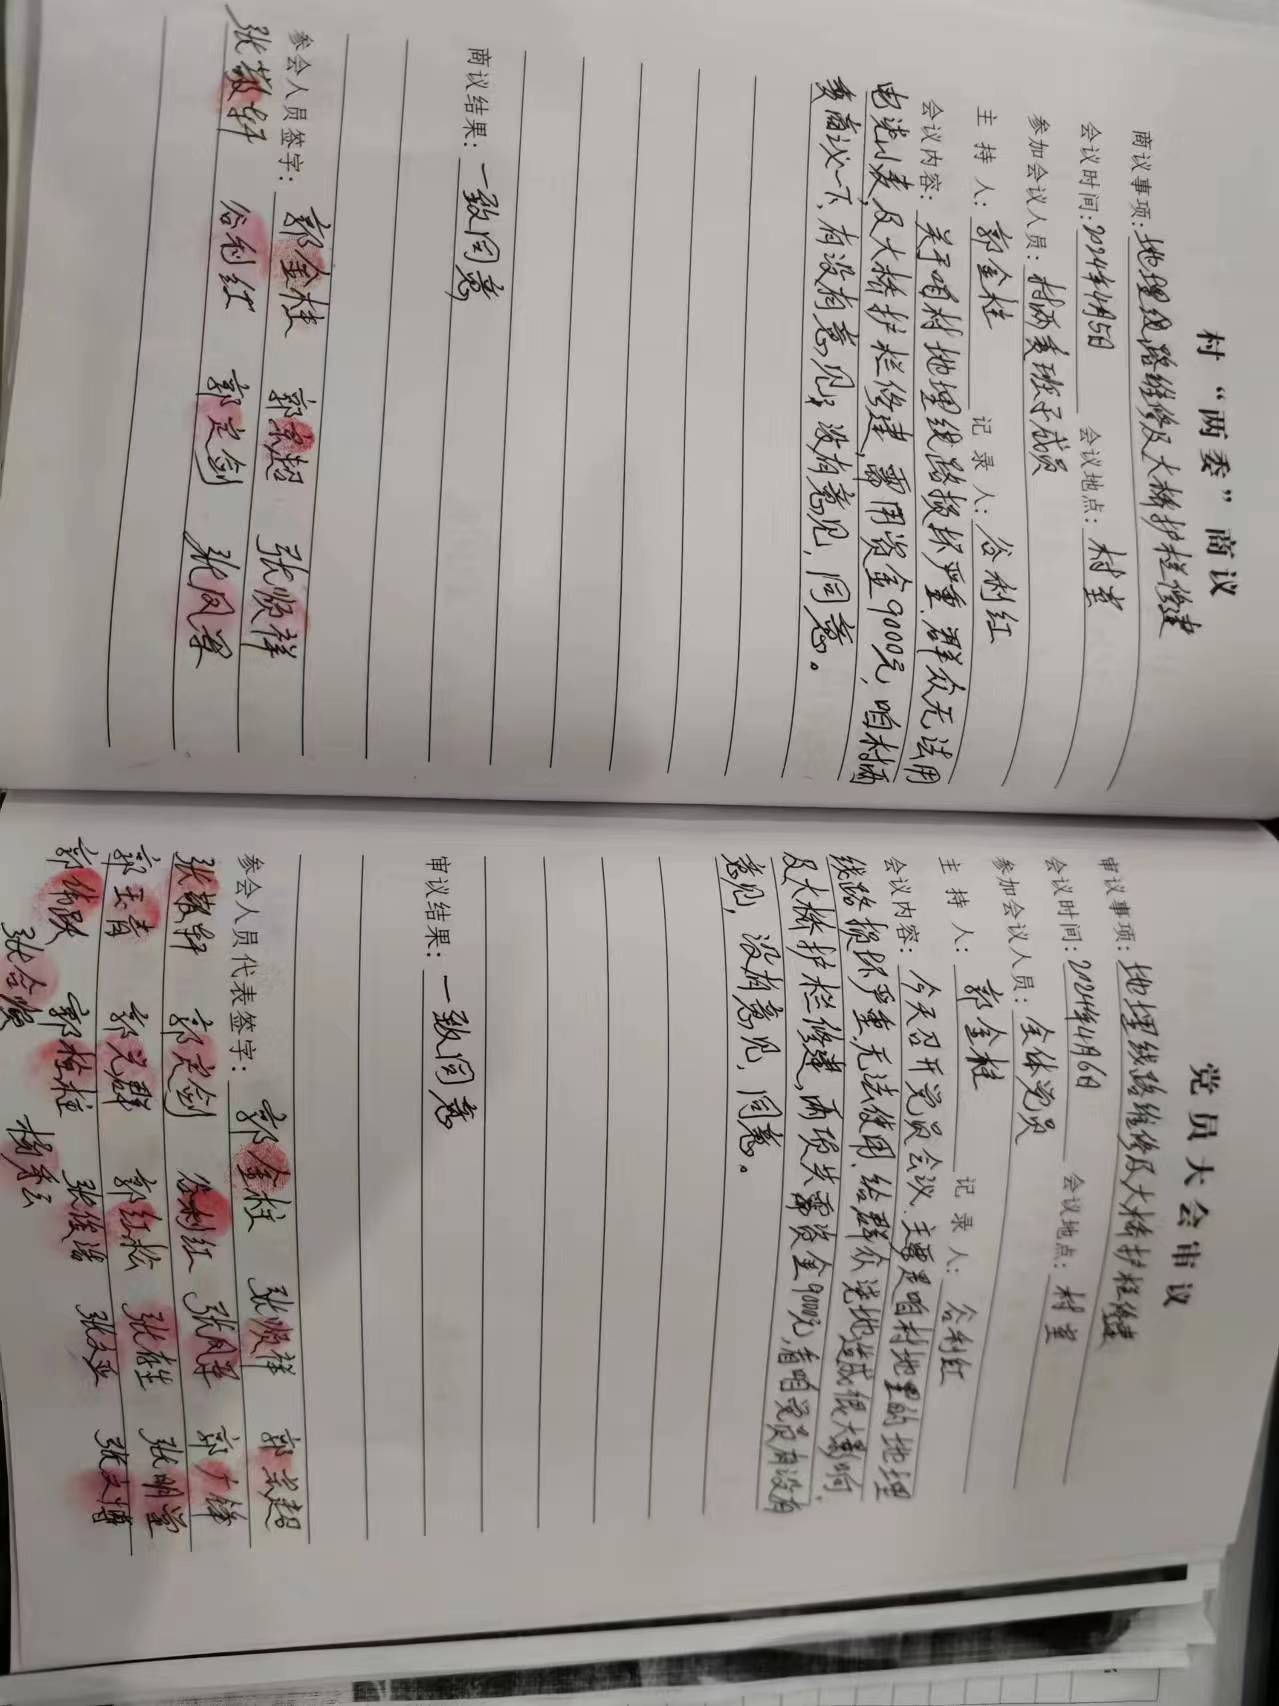 村“两委”商议
商议事项：地埋线路维修及大桥护栏修建
会议时间：2024年4月5日 会议地点：村室
参加会议人员：村两委班子成员
主持人：郭金柱 记录人：谷利红
会议内容：关于咱村地埋线路损坏严重，群众无法用
电浇小麦，及大桥护栏修建，需用资金9000元，咱村两
委商议一下，有没有意见；没有意见，同意。
商议结果：一致同意
参会人员签字：郭金柱 郭宗超 张顺祥
张敬轩 谷利红 郭定剑 张凤军
党员大会审议
审议事项：地埋线路维修及大桥护栏修建
会议时间：2024年4月6日 会议地点：村室
参加会议人员：全体党员
主持人：郭金柱 记录人：谷利红
会议内容：今天召开党员会议，主要是咱村地里的地埋
线路损坏严重，无法使用，给群众浇地造成很大影响，
及大桥护栏修建，两项共需资金9000元，看咱党员有没有
意见，没有意见，同意。
审议结果：一致同意
参会人员代表签字：郭金柱 张顺祥 郭宗超
张敬轩 郭定剑 谷利红 张凤军 郭广锋
郭玉青 郭兰群 郭红松 张存生 张明堂
郭伟跃 郭栓柱 张俊浩 张文亚 张文博
张合顺 杨秀云